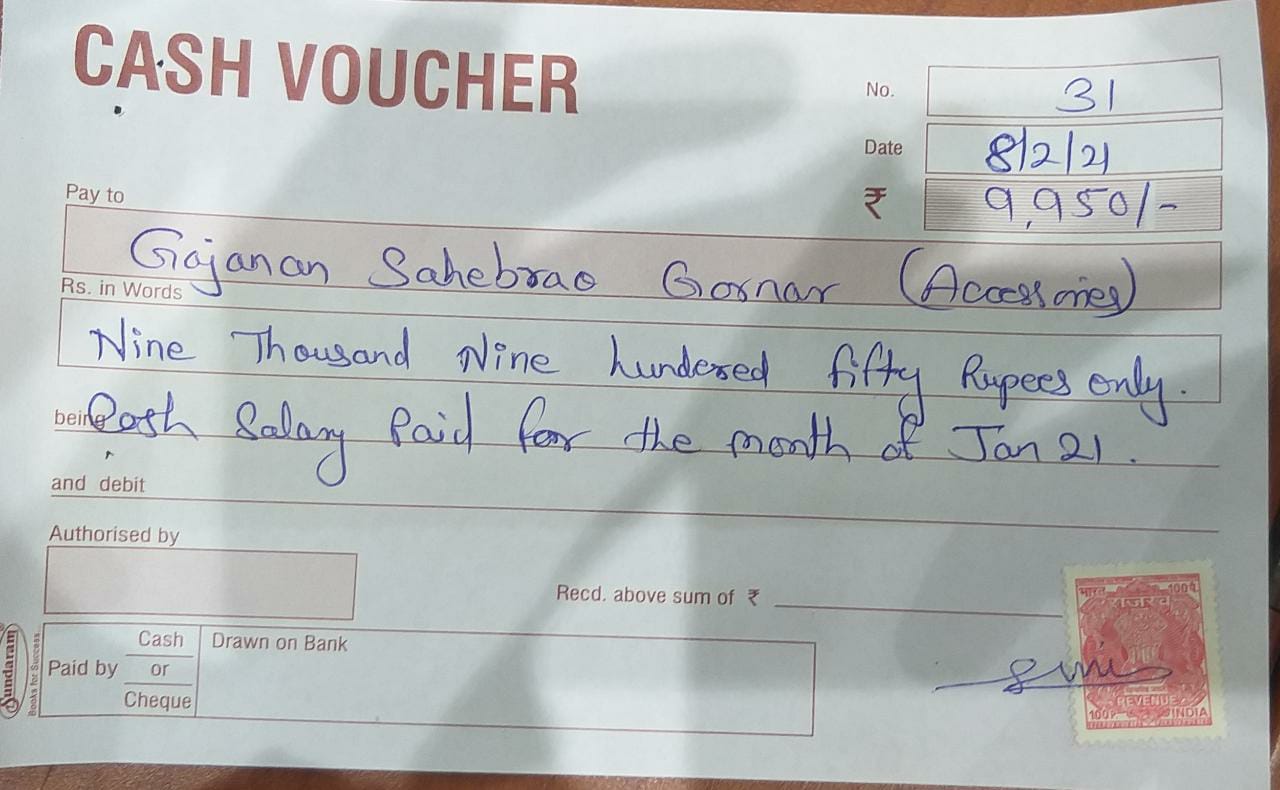 CASH VOUCHER
No. 31
Date 8/2/21
₹ 9,950/-
Pay to
Gajanan Sahebrao Gornar (Accessories)
Rs. in Words
Nine Thousand Nine hundered fifty Rupees only.
being Cash Salary Paid for the month of Jan 21.
and debit
Authorised by
Recd. above sum of ₹
Paid by Cash or Cheque
Drawn on Bank
Sundaram
Books for Success...
भारत 100पै.
राजस्व
REVENUE
100P. INDIA